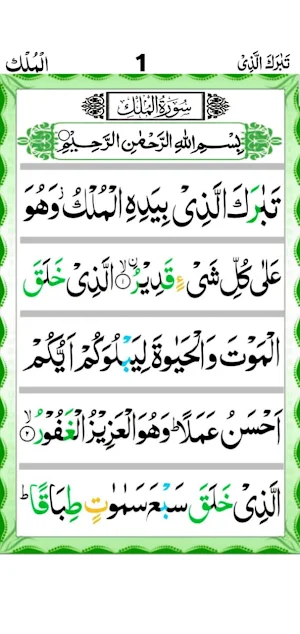 تَبٰرَكَ الَّذِیْ 1 الْمُلْك
سُوْرَةُ الْمُلْكِ
بِسْمِ اللهِ الرَّحْمٰنِ الرَّحِیْمِ
تَبٰرَكَ الَّذِیْ بِیَدِهِ الْمُلْكُ٘ وَهُوَ
عَلٰی كُلِّ شَیْءٍ قَدِیْرُ ۙ۝۱ الَّذِیْ خَلَقَ
الْمَوْتَ وَالْحَیٰوةَ لِیَبْلُوَكُمْ اَیُّكُمْ
اَحْسَنُ عَمَلًا ؕ وَهُوَ الْعَزِیْزُ الْغَفُوْرُ ۙ۝۲
الَّذِیْ خَلَقَ سَبْعَ سَمٰوٰتٍ طِبَاقًا ؕ